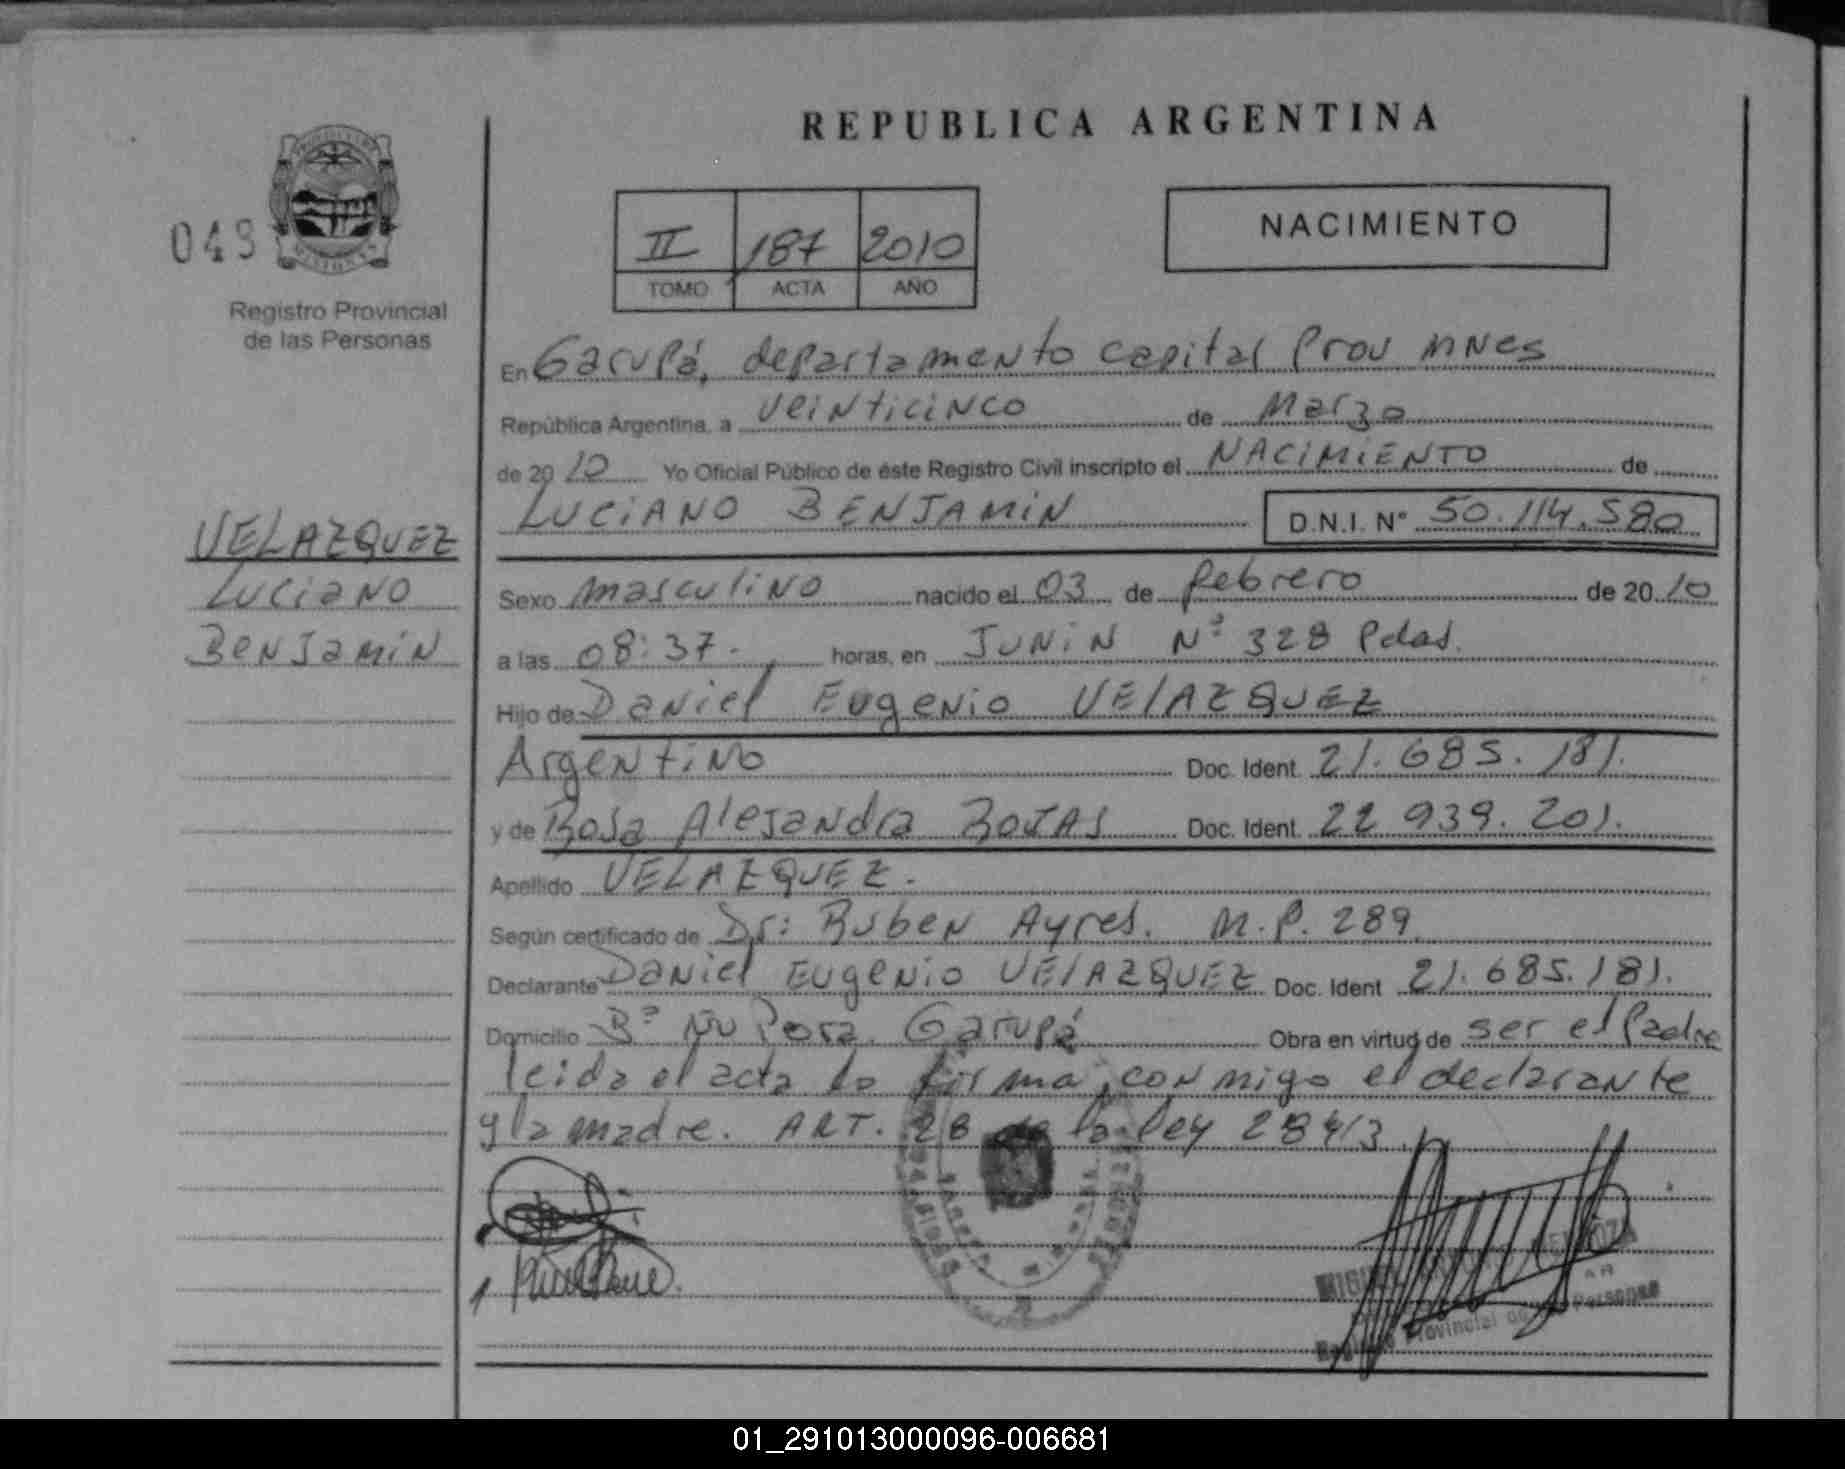 REPUBLICA ARGENTINA
049
MISIONES
Registro Provincial
de las Personas
II 187 2010
TOMO ACTA AÑO
NACIMIENTO
En Garupá, departamento capital Prov mnes
República Argentina, a veinticinco de Marzo
de 2010 Yo Oficial Público de éste Registro Civil inscripto el NACIMIENTO de
LUCIANO BENJAMIN D.N.I. N° 50.114.580
VELAZQUEZ
Luciano
Benjamin
Sexo masculino nacido el 03 de febrero de 2010
a las 08:37. horas, en JUNIN N° 328 Pdas.
Hijo de Daniel Eugenio VELAZQUEZ
Argentino Doc. Ident. 21.685.181.
y de Rosa Alejandra ROJAS Doc. Ident. 22 939.201.
Apellido VELAZQUEZ.
Según certificado de Dr: Ruben Ayres. M.P. 289
Declarante Daniel Eugenio VELAZQUEZ Doc. Ident 21.685.181.
Domicilio B° Ñu Pora. Garupá Obra en virtud de ser el Padre
leida el acta la firma, conmigo el declarante
y la madre. ART. 28 de la ley 28413
MIGUEL MENDOZA
Registro Provincial de las Personas
01_291013000096-006681